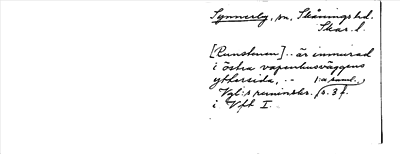 Synnerby, sn, Skånings hd.
Skar. l.
[Runstenen] .. är inmurad
i östra vapenhusväggens
yttersida, .. 1:a saml.
Vgl:s fornminnesför. s. 3 f.
i Vft I.